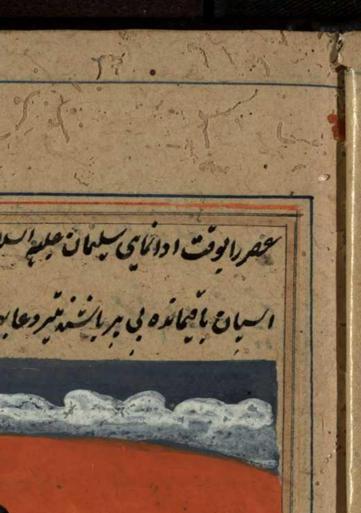 عصر را بوقت ادا نمای سلیمان علیه السلا
اسپان باقیمانده بی پر باشند تیر دعا بو